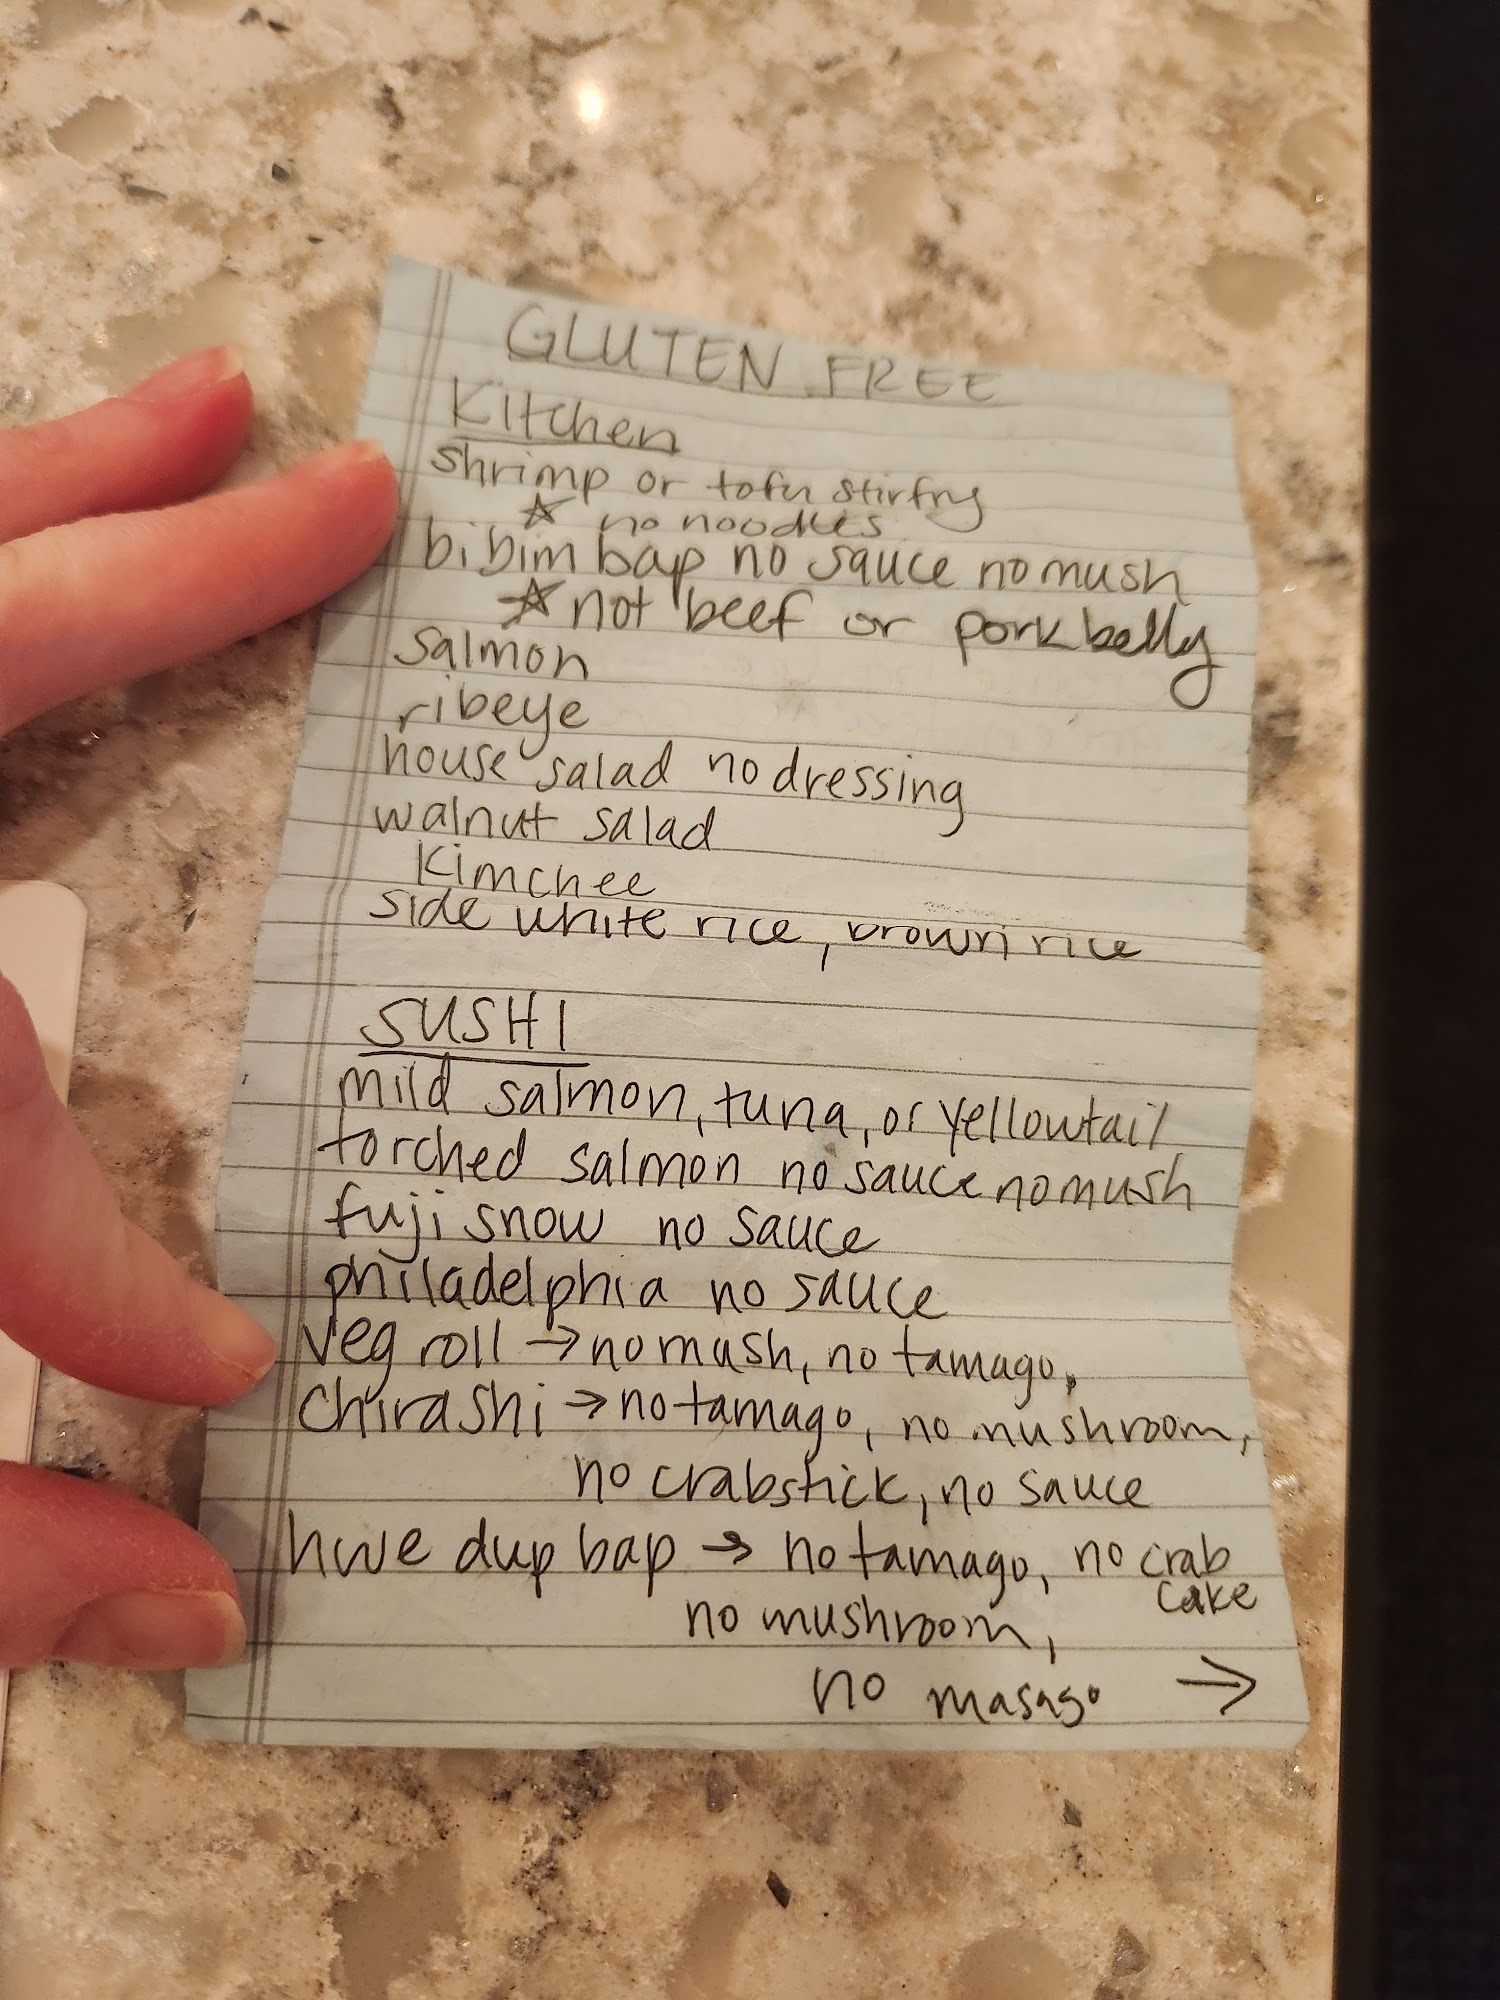 GLUTEN FREE
Kitchen
shrimp or tofu stirfry
☆ no noodles
bibim bap no sauce no mush
☆ not beef or pork belly
salmon
ribeye
house salad no dressing
walnut salad
Kimchee
side white rice, brown rice
SUSHI
mild salmon, tuna, or yellowtail
torched salmon no sauce no mush
fuji snow no sauce
philadelphia no sauce
veg roll → no mush, no tamago,
chirashi → no tamago, no mushroom,
no crabstick, no sauce
hwe dup bap → no tamago, no crab
cake
no mushroom,
no masago →